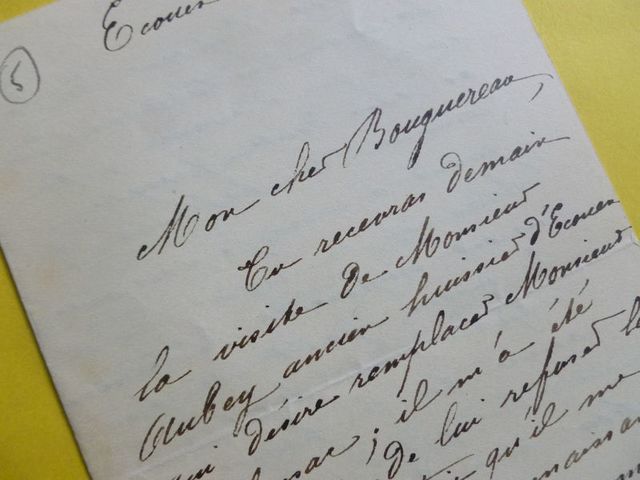 5
Ecouen
Mon cher Bouguereau,
Tu recevras demain
la visite de Monsieur
Aubey ancien huissier d'Ecouen
qui désire remplacer Monsieur
; il m'a été
de lui refuser la
qu'il me